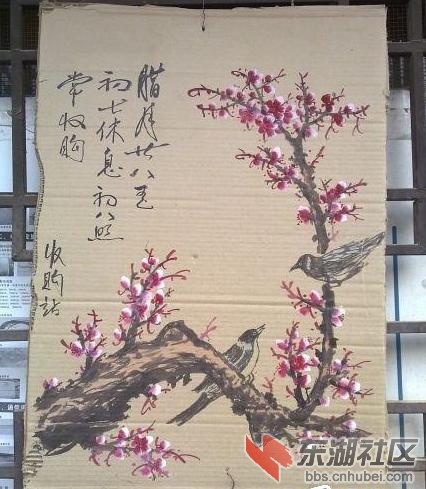 腊月廿八至
初七休息初八照
常收购
收购站
东湖社区
bbs.cnhubei.com